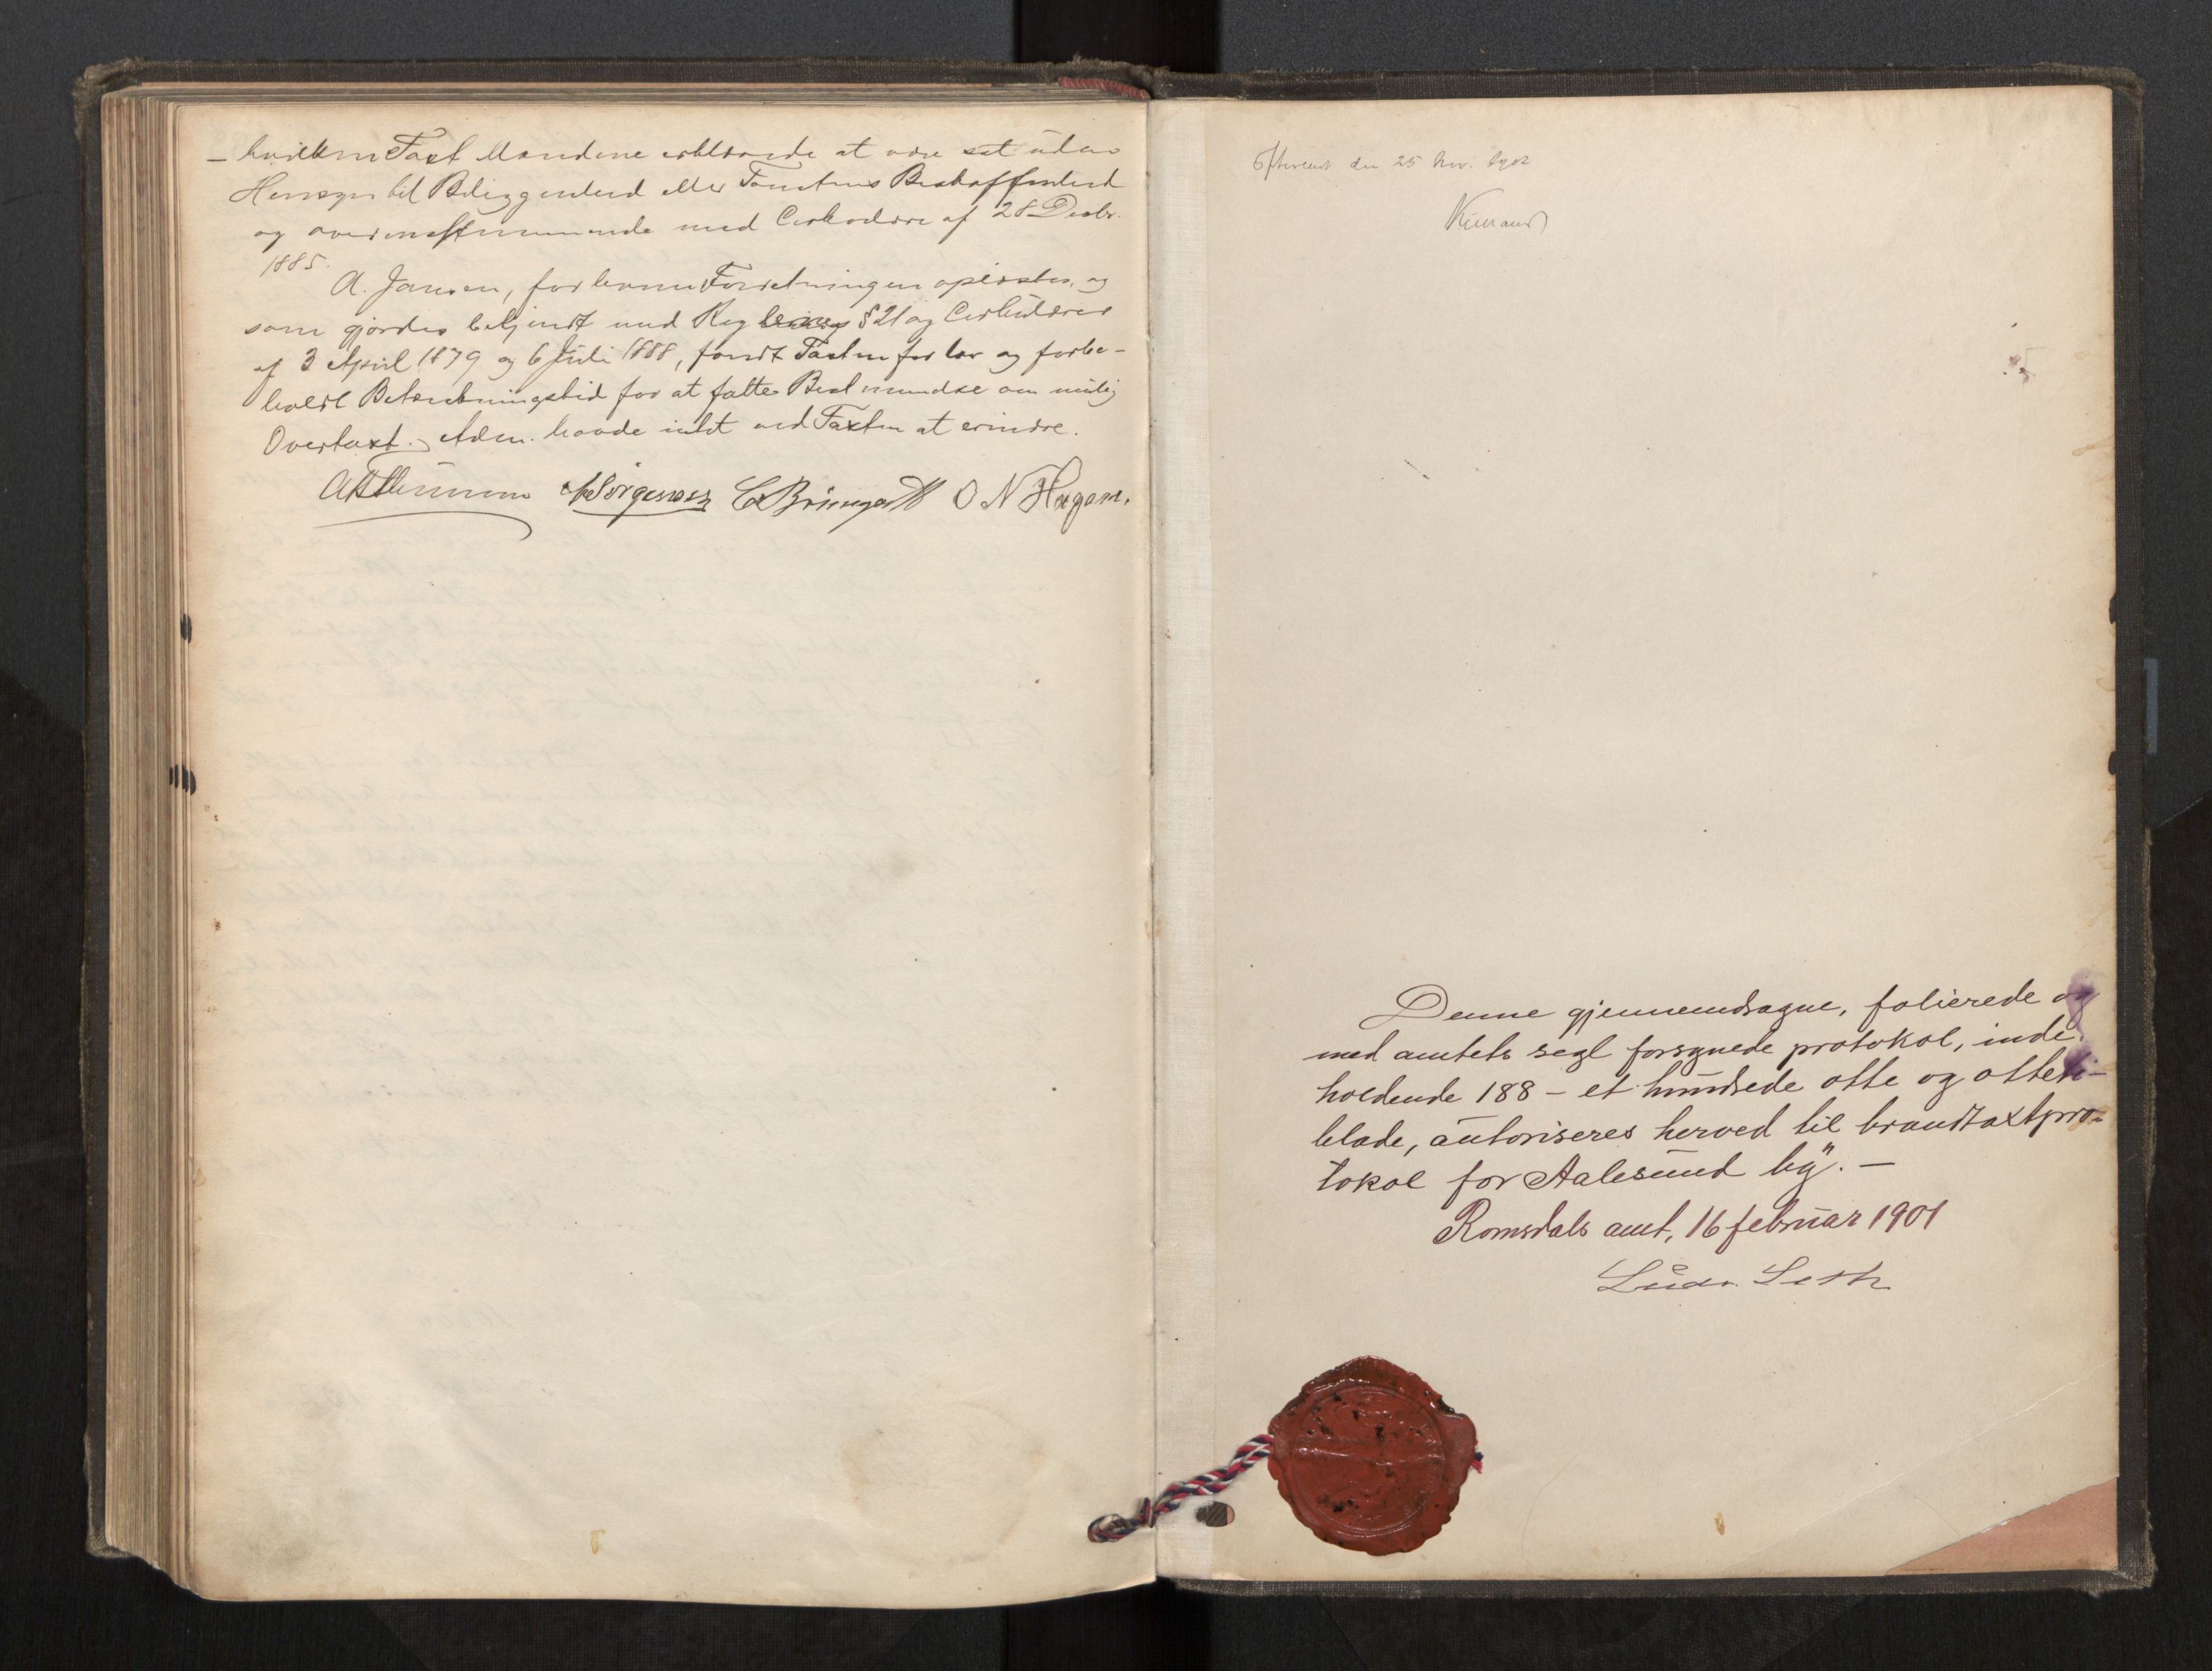 – hvilken Taxt Mændene erklærede at være sat uden
Hensyn til Beliggenhed eller Tomtens Beskaffenhed
og overensstemmende med Cirkulære af 28 Decbr.
1885.
A. Jansen, for hvem Forretningen oplæstes, og
som gjordes bekjendt med Regl §21 og Cirkulærer
af 3 April 1879 og 6 Juli 1888, fandt Taxten for lav og forbe-
holdt Betænkningstid for at fatte Bestemmelse om mulig
Overtaxt. Adm. havde intet ved Taxten at erindre.
Jørgensen O N Hagen.
Efterseet den 25 Nov. 1902
Denne gjennemdragne, folierede og
med amtets segl forsynede protokol, inde-
holdende 188 – et hundrede otte og otteti –
blade, autoriseres herved til brandtaxtpro-
tokol for Aalesund by. –
Romsdals amt, 16 februar 1901